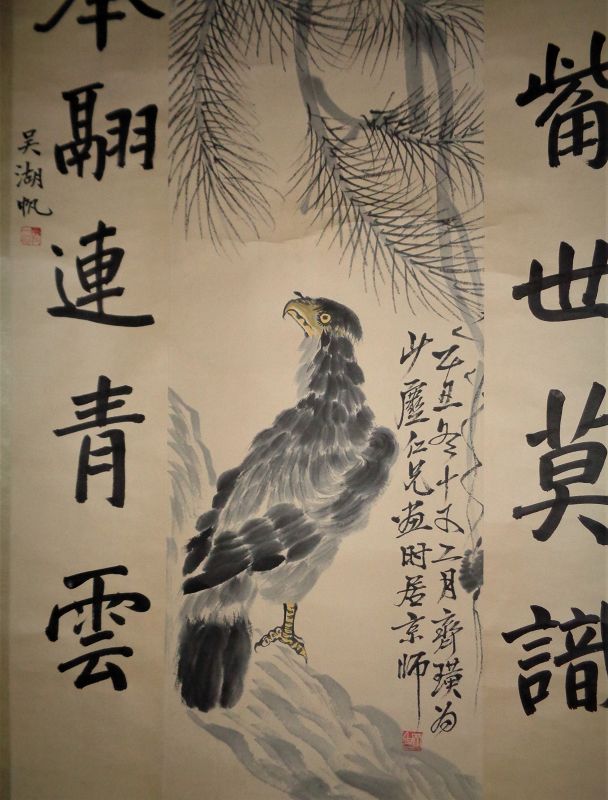 世莫識
乙丑冬十又二月齊璜为
少塵仁兄畫时居京師
翮連青雲
吴湖帆